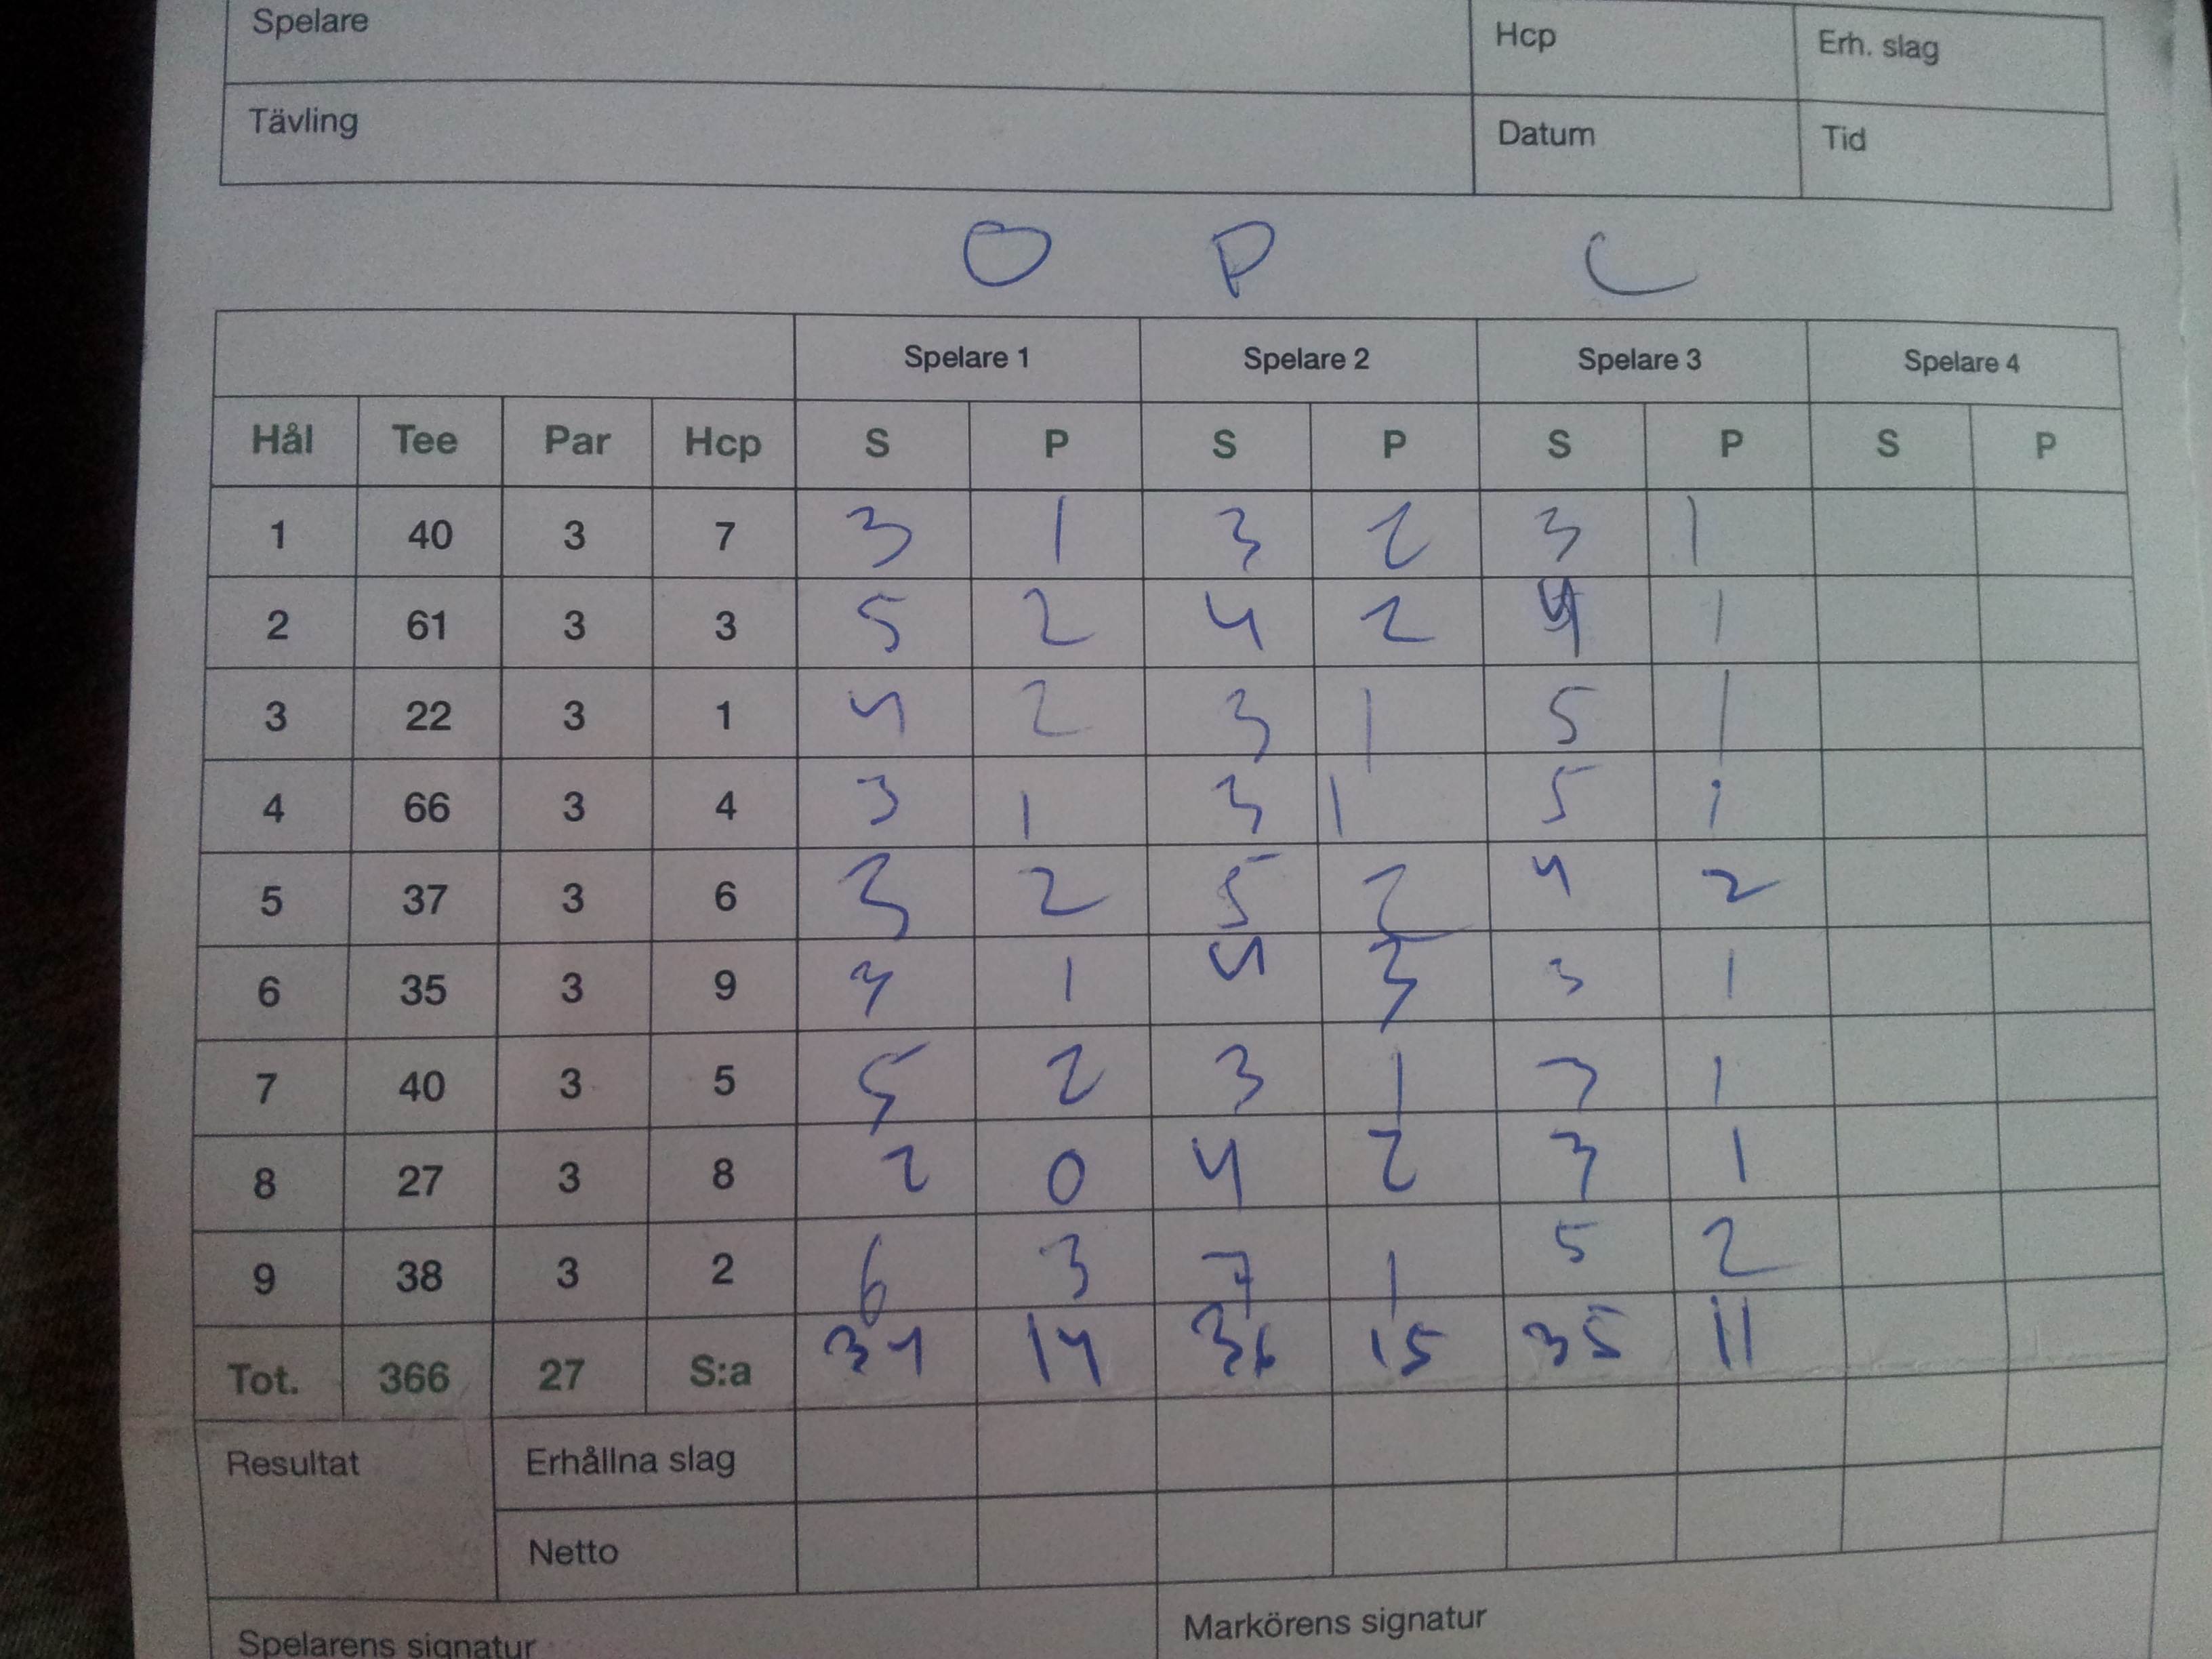 Spelare Hcp Erh. slag
Tävling Datum Tid
O P C
Spelare 1 Spelare 2 Spelare 3 Spelare 4
Hål Tee Par Hcp S P S P S P S P
1 40 3 7 3 1 3 2 3 1
2 61 3 3 5 2 4 2 4 1
3 22 3 1 4 2 3 1 5 1
4 66 3 4 3 1 3 1 5 1
5 37 3 6 3 2 5 2 4 2
6 35 3 9 3 1 4 3 3 1
7 40 3 5 5 2 3 1 3 1
8 27 3 8 2 0 4 2 3 1
9 38 3 2 6 3 7 1 5 2
Tot. 366 27 S:a 34 14 36 15 35 11
Resultat Erhållna slag
Netto
Spelarens signatur Markörens signatur